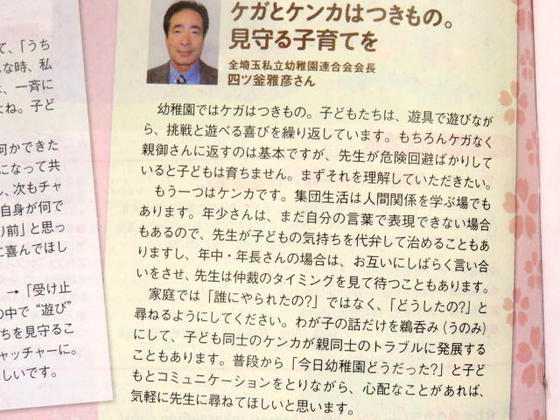 て、「うち
な時、私
は、一斉に
よね。子ど
何かできた
になって共
し、次もチャ
自身が何で
り前」と思っ
に喜んでほし
→「受け止
の中で“遊び”
ちを見守るこ
ャッチャーに。
しいです。
ケガとケンカはつきもの。
見守る子育てを
全埼玉私立幼稚園連合会会長
四ツ釜雅彦さん
幼稚園ではケガはつきもの。子どもたちは、遊具で遊びなが
ら、挑戦と遊べる喜びを繰り返しています。もちろんケガなく
親御さんに返すのは基本ですが、先生が危険回避ばかりして
いると子どもは育ちません。まずそれを理解していただきたい。
もう一つはケンカです。集団生活は人間関係を学ぶ場でも
あります。年少さんは、まだ自分の言葉で表現できない場合
もあるので、先生が子どもの気持ちを代弁して治めることもあ
りますし、年中・年長さんの場合は、お互いにしばらく言い合
いをさせ、先生は仲裁のタイミングを見て待つこともあります。
家庭では「誰にやられたの?」ではなく、「どうしたの?」と
尋ねるようにしてください。わが子の話だけを鵜呑み(うのみ)
にして、子ども同士のケンカが親同士のトラブルに発展する
こともあります。普段から「今日幼稚園どうだった?」と子ど
もとコミュニケーションをとりながら、心配なことがあれば、
気軽に先生に尋ねてほしいと思います。